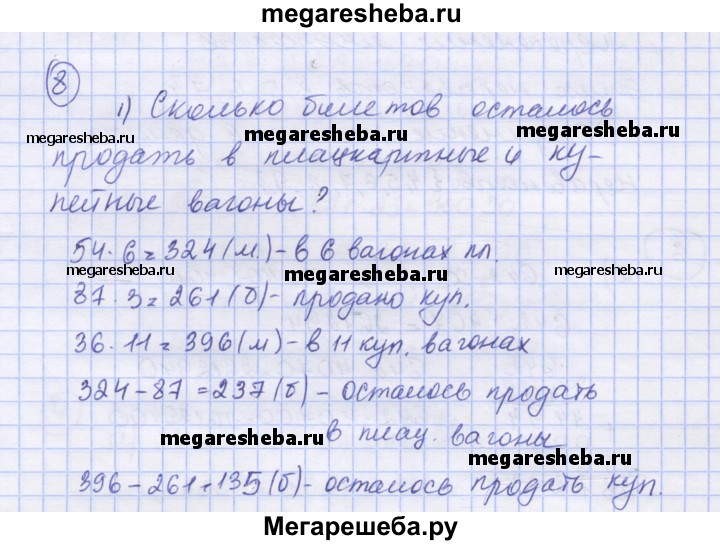 megaresheba.ru
8
1) Сколько билетов осталось
megaresheba.ru megaresheba.ru megaresheba.ru
продать в плацкартные и ку-
пейные вагоны?
54 · 6 = 324 (м.) - в 6 вагонах пл.
megaresheba.ru megaresheba.ru megaresheba.ru
87 · 3 = 261 (б) - продано куп.
36 · 11 = 396 (м) - в 11 куп. вагонах
324 - 87 = 237 (б) - осталось продать
megaresheba.ru в плац. вагоны
megaresheba.ru
396 - 261 = 135 (б) - осталось продать куп.
Мегарешеба.ру